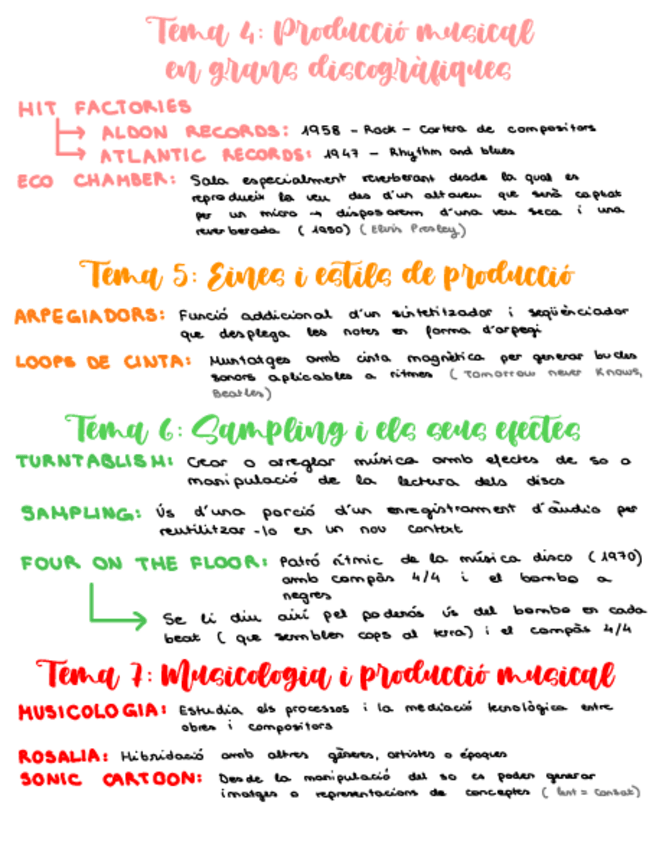 Tema 4: Producció musical
en grans discogràfiques
HIT FACTORIES
ALDON RECORDS: 1958 - Rock - Cartera de compositors
ATLANTIC RECORDS: 1947 - Rhythm and blues
ECO CHAMBER: Sala especialment reverberant desde la qual es
reprodueix la veu des d'un altaveu que serà captat
per un micro → disposarem d'una veu seca i una
reverberada (1950) (Elvis Presley)
Tema 5: Eines i estils de producció
ARPEGIADORS: Funció addicional d'un sintetitzador i seqüènciador
que desplega les notes en forma d'arpegi
LOOPS DE CINTA: Muntatges amb cinta magnètica per generar bucles
sonors aplicables a ritmes (Tomorrow never Knows,
Beatles)
Tema 6: Sampling i els seus efectes
TURNTABLISM: Crear o arreglar música amb efectes de so o
manipulació de la lectura dels discs
SAMPLING: Ús d'una porció d'un enregistrament d'àudio per
reutilitzar-lo en un nou context
FOUR ON THE FLOOR: Patró rítmic de la música disco (1970)
amb compàs 4/4 i el bombo a
negres
Se li diu així pel poderós ús del bombo en cada
beat (que semblen cops al terra) i el compàs 4/4
Tema 7: Musicologia i producció musical
MUSICOLOGIA: Estudia els processos i la mediació tecnològica entre
obres i compositors
ROSALIA: Hibridació amb altres gèneres, artistes o èpoques
SONIC CARTOON: Desde la manipulació del so es poden generar
imatges o representacions de conceptes (lent = cansat)